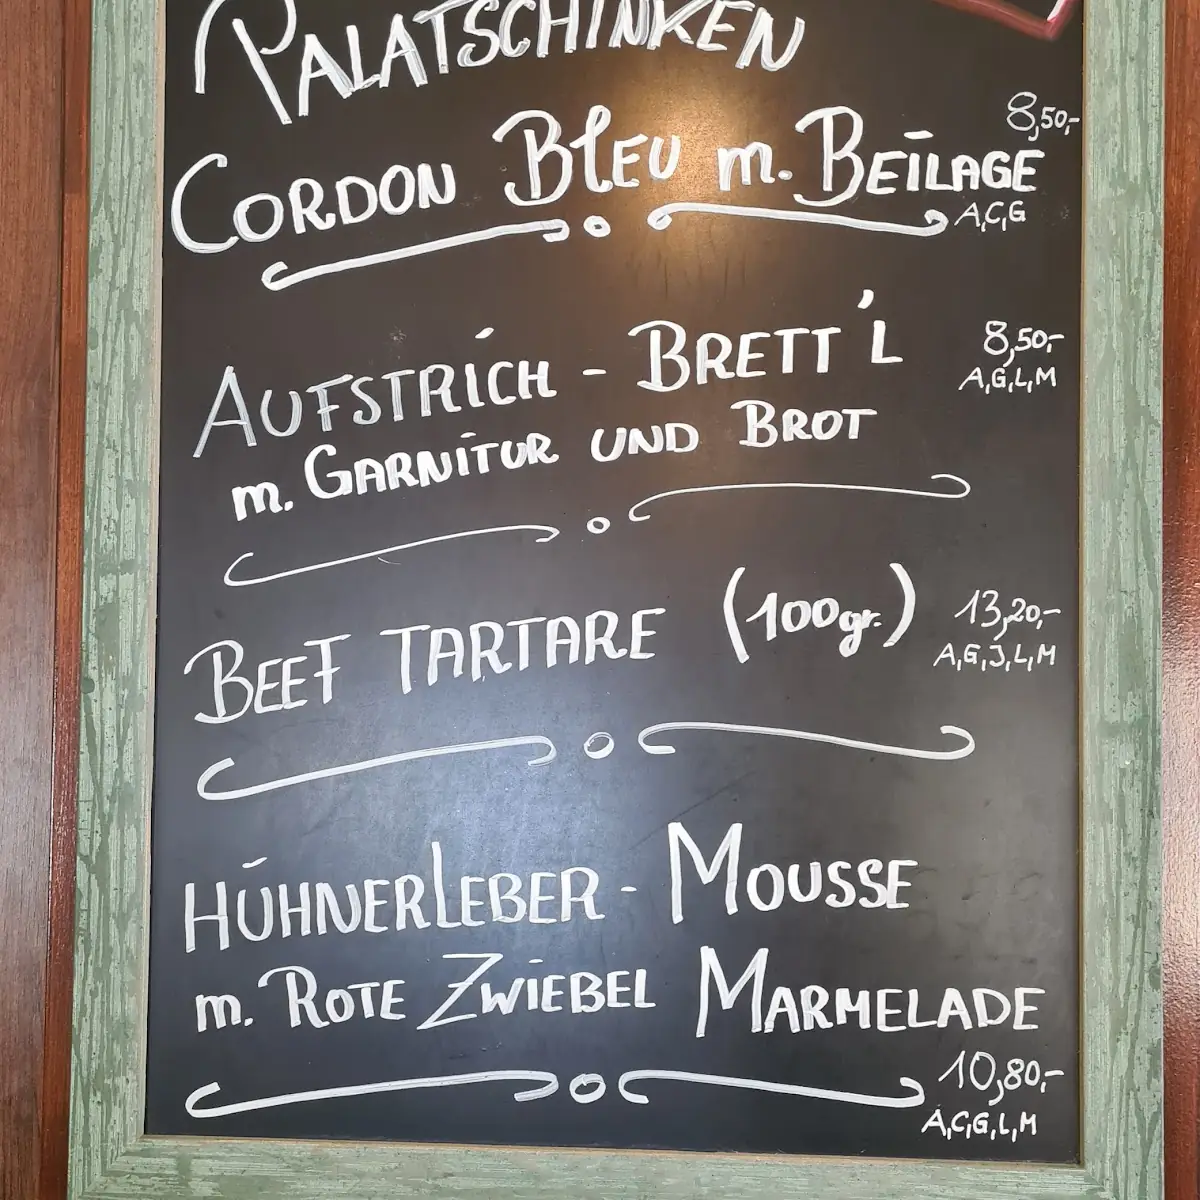 PALATSCHINKEN
8,50,-
CORDON BLEU m. BEILAGE
A,C,G
AUFSTRICH - BRETT'L
8,50,-
A,G,L,M
m. GARNITUR UND BROT
BEEF TARTARE (100gr.)
13,20,-
A,G,J,L,M
HÜHNERLEBER - MOUSSE
m. ROTE ZWIEBEL MARMELADE
10,80,-
A,C,G,L,M